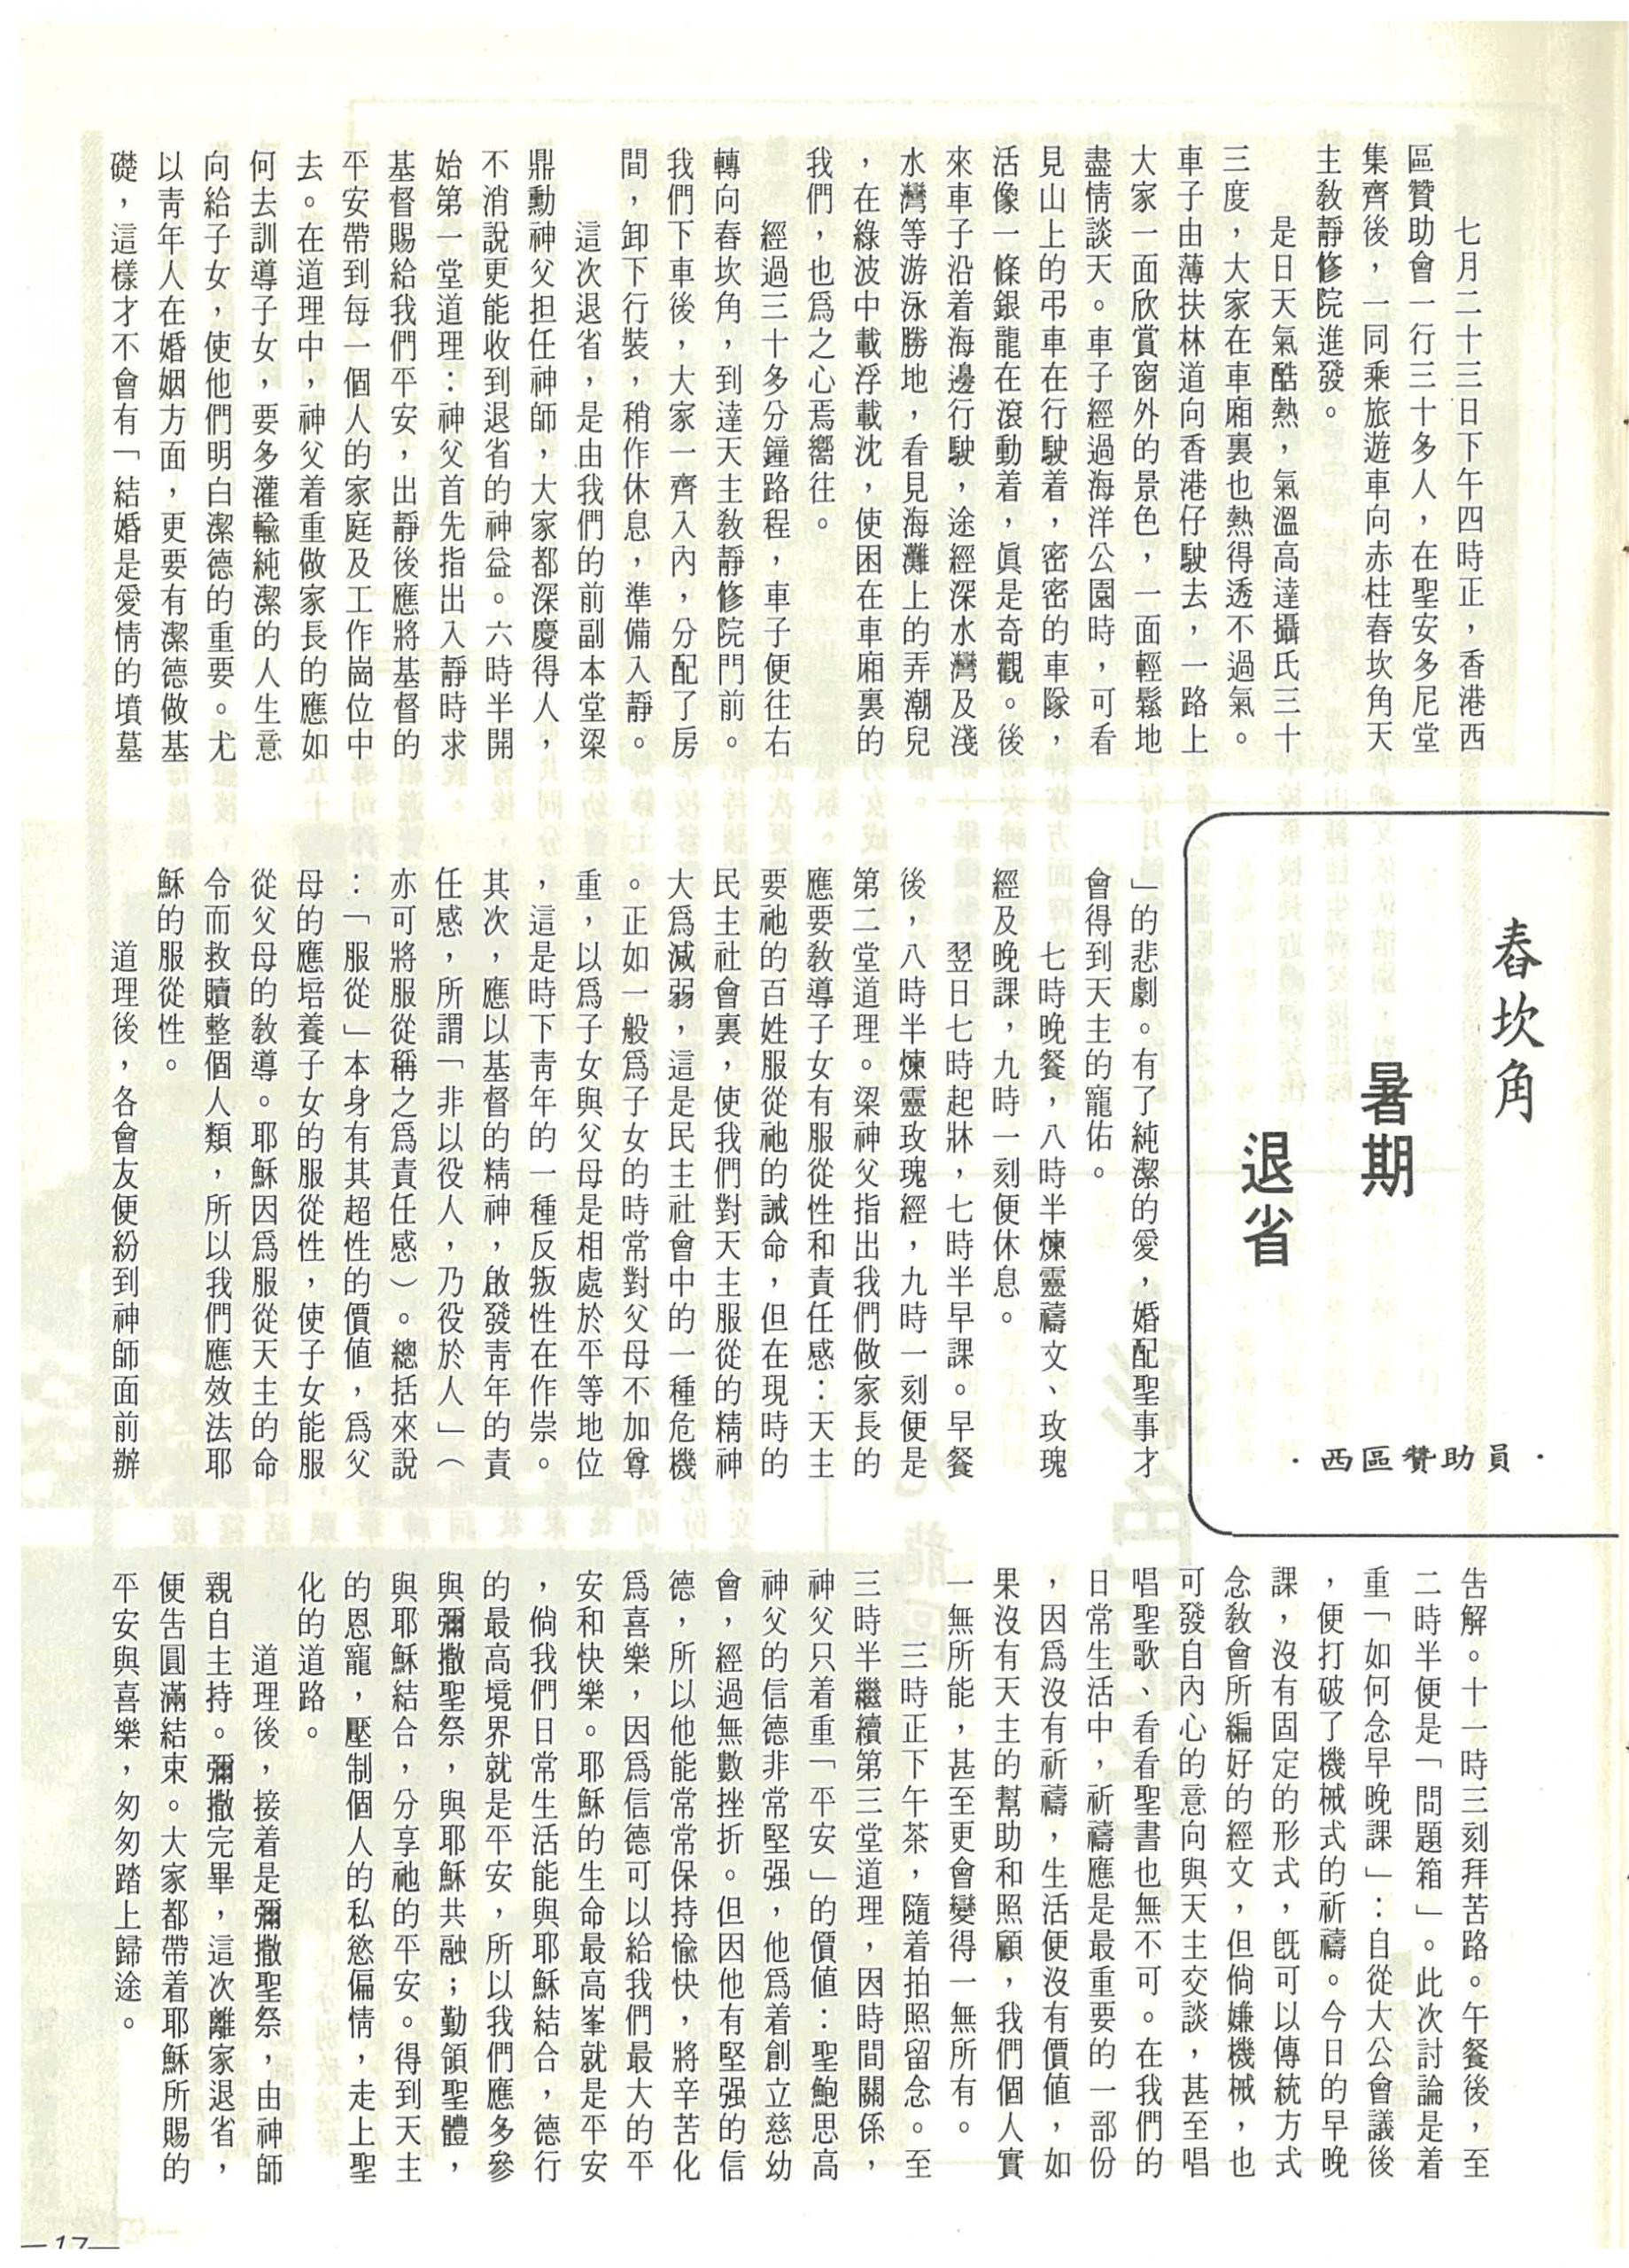 舂坎角
暑期
退省
·西區贊助員·
七月二十三日下午四時正，香港西
區贊助會一行三十多人，在聖安多尼堂
集齊後，一同乘旅遊車向赤柱舂坎角天
主教靜修院進發。
是日天氣酷熱，氣溫高達攝氏三十
三度，大家在車廂裏也熱得透不過氣。
車子由薄扶林道向香港仔駛去，一路上
大家一面欣賞窗外的景色，一面輕鬆地
盡情談天。車子經過海洋公園時，可看
見山上的吊車在行駛着，密密的車隊，
活像一條銀龍在滾動着，眞是奇觀。後
來車子沿着海邊行駛，途經深水灣及淺
水灣等游泳勝地，看見海灘上的弄潮兒
，在綠波中載浮載沈，使困在車廂裏的
我們，也爲之心焉嚮往。
經過三十多分鐘路程，車子便往右
轉向舂坎角，到達天主教靜修院門前。
我們下車後，大家一齊入內，分配了房
間，卸下行裝，稍作休息，準備入靜。
這次退省，是由我們的前副本堂梁
鼎勳神父担任神師，大家都深慶得人，
不消說更能收到退省的神益。六時半開
始第一堂道理：神父首先指出入靜時求
基督賜給我們平安，出靜後應將基督的
平安帶到每一個人的家庭及工作崗位中
去。在道理中，神父着重做家長的應如
何去訓導子女，要多灌輸純潔的人生意
向給子女，使他們明白潔德的重要。尤
以靑年人在婚姻方面，更要有潔德做基
礎，這樣才不會有「結婚是愛情的墳墓
」的悲劇。有了純潔的愛，婚配聖事才
會得到天主的寵佑。
七時晚餐，八時半煉靈禱文、玫瑰
經及晚課，九時一刻便休息。
翌日七時起牀，七時半早課。早餐
後，八時半煉靈玫瑰經，九時一刻便是
第二堂道理。梁神父指出我們做家長的
應要敎導子女有服從性和責任感：天主
要祂的百姓服從祂的誡命，但在現時的
民主社會裏，使我們對天主服從的精神
大爲減弱，這是民主社會中的一種危機
。正如一般爲子女的時常對父母不加尊
重，以爲子女與父母是相處於平等地位
，這是時下靑年的一種反叛性在作祟。
其次，應以基督的精神，啟發靑年的責
任感，所謂「非以役人，乃役於人」（
亦可將服從稱之爲責任感）。總括來說
：「服從」本身有其超性的價值，爲父
母的應培養子女的服從性，使子女能服
從父母的敎導。耶穌因爲服從天主的命
令而救贖整個人類，所以我們應效法耶
穌的服從性。
道理後，各會友便紛到神師面前辦
吿解。十一時三刻拜苦路。午餐後，至
二時半便是「問題箱」。此次討論是着
重「如何念早晚課」：自從大公會議後
，便打破了機械式的祈禱。今日的早晚
課，沒有固定的形式，旣可以傳統方式
念敎會所編好的經文，但倘嫌機械，也
可發自內心的意向與天主交談，甚至唱
唱聖歌、看看聖書也無不可。在我們的
日常生活中，祈禱應是最重要的一部份
，因爲沒有祈禱，生活便沒有價値，如
果沒有天主的幫助和照顧，我們個人實
一無所能，甚至更會變得一無所有。
三時正下午茶，隨着拍照留念。至
三時半繼續第三堂道理，因時間關係，
神父只着重「平安」的價値：聖鮑思高
神父的信德非常堅强，他爲着創立慈幼
會，經過無數挫折。但因他有堅强的信
德，所以他能常常保持愉快，將辛苦化
爲喜樂，因爲信德可以給我們最大的平
安和快樂。耶穌的生命最高峯就是平安
，倘我們日常生活能與耶穌結合，德行
的最高境界就是平安，所以我們應多參
與彌撒聖祭，與耶穌共融；勤領聖體，
與耶穌結合，分享祂的平安。得到天主
的恩寵，壓制個人的私慾偏情，走上聖
化的道路。
道理後，接着是彌撒聖祭，由神師
親自主持。彌撒完畢，這次離家退省，
便吿圓滿結束。大家都帶着耶穌所賜的
平安與喜樂，匆匆踏上歸途。
—17—